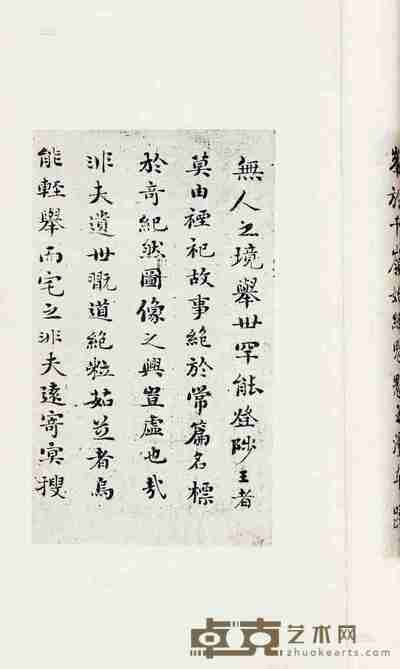 無人之境舉世罕能登陟王者
莫由禋祀故事絶於常篇名標
於奇紀然圖像之興豈虛也哉
非夫遺世翫道絶粒茹芝者烏
能輕舉而宅之非夫遠寄冥搜
卓克艺术网
zhuokearts.com